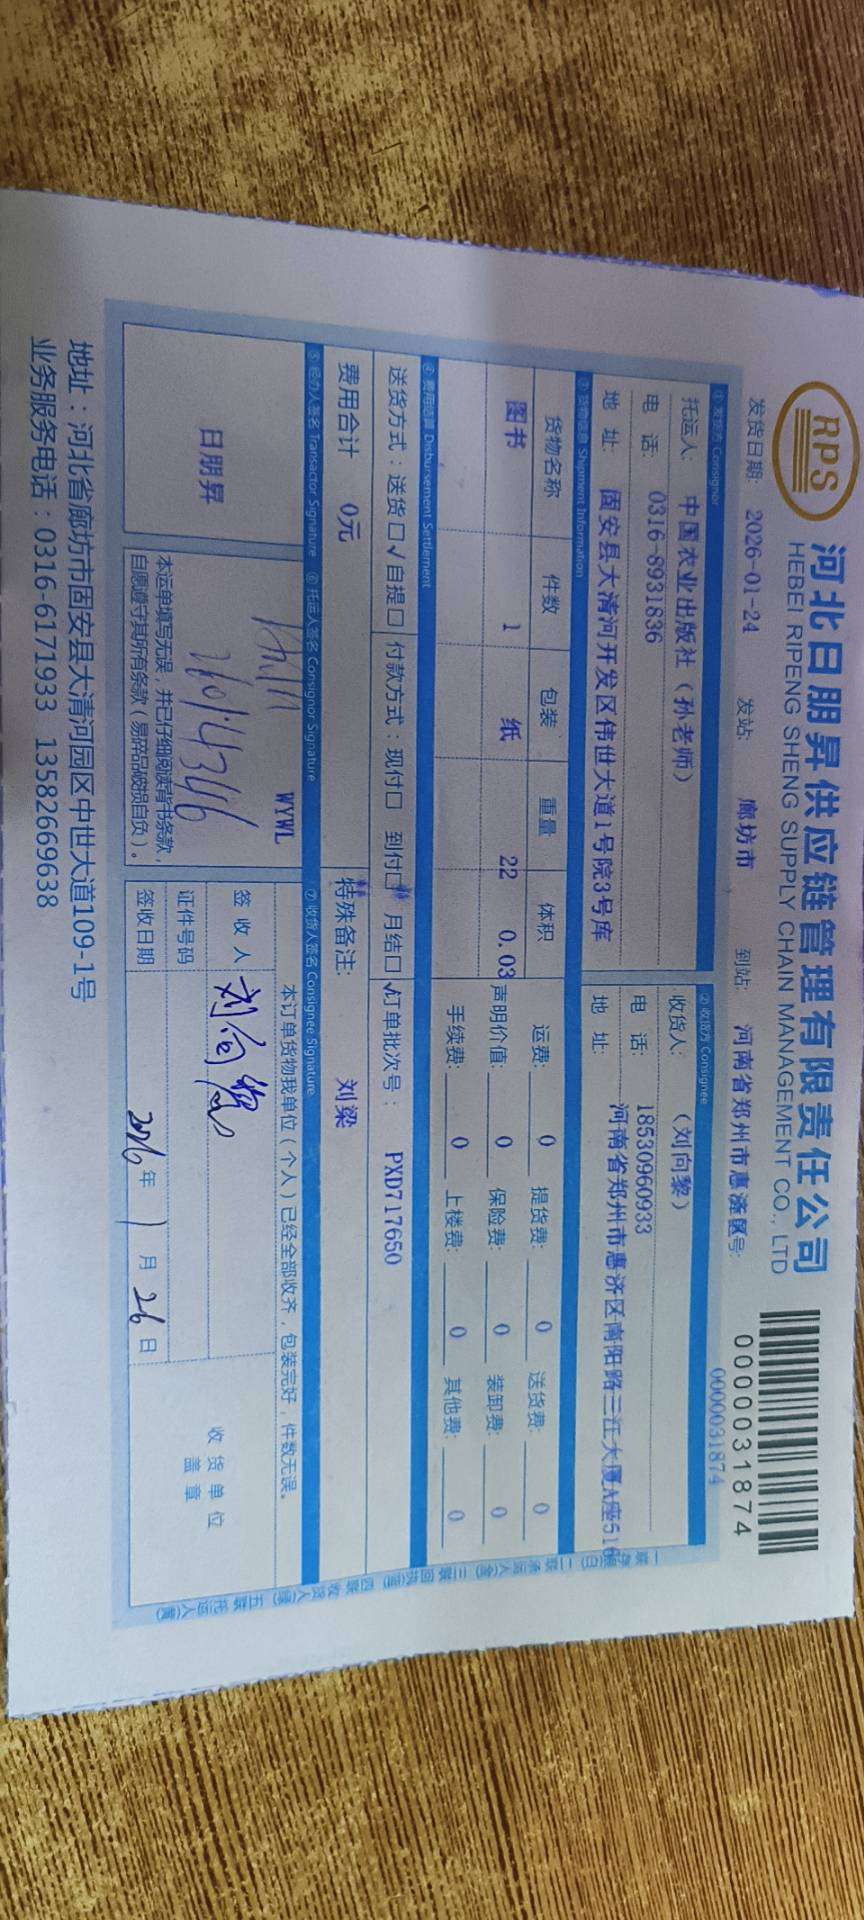 RPS
河北日朋昇供应链管理有限责任公司
HEBEI RIPENG SHENG SUPPLY CHAIN MANAGEMENT CO., LTD
0000031874
0000031874
发货日期: 2026-01-24 发站: 廊坊市 到站: 河南省郑州市惠济区号:
① 发货方 Consignor
托运人: 中国农业出版社（孙老师）
电 话: 0316-8931836
地 址: 固安县大清河开发区伟世大道1号院3号库
② 收货方 Consignee
收货人: （刘向黎）
电 话: 18530960933
地 址: 河南省郑州市惠济区南阳路三江大厦A座516
③ 货物信息 Shipment Information
货物名称 件数 包装 重量 体积
图书 1 纸 22 0.03
运费: 0 提货费: 0 送货费: 0
声明价值: 0 保险费: 0 装卸费: 0
手续费: 0 上楼费: 0 其他费: 0
④ 费用结算 Disbursement Settlement
送货方式：送货□√自提□ 付款方式：现付□ 到付□ 月结□√ 订单批次号： PXD717650
费用合计 0元 特殊备注: 刘梁
⑤ 经办人签名 Transactor Signature
日朋昇
⑥ 托运人签名 Consignor Signature
WYWL
本运单填写无误，并已仔细阅读背书条款，
自愿遵守其所有条款（易碎品破损自负）。
⑦ 收货人签名 Consignee Signature
本订单货物我单位（个人）已经全部收齐，包装完好，件数无误。
签 收 人 刘向黎
证件号码
签收日期 2026年1月26日
收 货 单 位
盖 章
地址：河北省廊坊市固安县大清河园区中世大道109-1号
业务服务电话：0316-6171933 13582669638